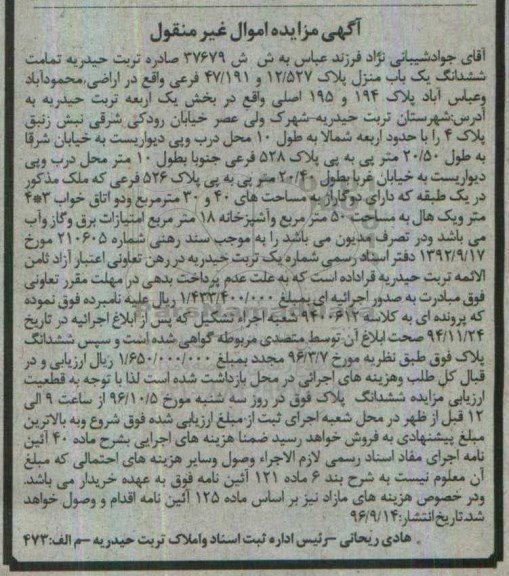 آگهی مزایده اموال غیر منقول
آقای جوادشیبانی نژاد فرزند عباس به ش ش ۳۷۶۷۹ صادره تربت حیدریه تمامت
ششدانگ یک باب منزل پلاک ۱۲/۵۲۷ و ۴۷/۱۹۱ فرعی واقع در اراضی،محمودآباد
وعباس آباد پلاک ۱۹۴ و ۱۹۵ اصلی واقع در بخش یک اربعه تربت حیدریه به
آدرس:شهرستان تربت حیدریه-شهرک ولی عصر خیابان رودکی شرقی نبش زنبق
پلاک ۴ را با حدود اربعه شمالا به طول ۱۰ محل درب وپی دیواریست به خیابان شرقا
به طول ۲۰/۵۰ متر پی به پی پلاک ۵۲۸ فرعی جنوبا بطول ۱۰ متر محل درب وپی
دیواریست به خیابان غربا بطول ۲۰/۴۰ متر پی به پی پلاک ۵۲۶ فرعی که ملک مذکور
در یک طبقه که دارای دوگاراژ به مساحت های ۴۰ و ۳۰ مترمربع ودو اتاق خواب ۳*۴
متر ویک هال به مساحت ۵۰ متر مربع وآشپزخانه ۱۸ متر مربع امتیازات برق وگاز وآب
می باشد ودر تصرف مدیون می باشد را به موجب سند رهنی شماره ۲۱۰۶۰۵ مورخ
۱۳۹۲/۹/۱۷ دفتر اسناد رسمی شماره یک تربت حیدریه در رهن تعاونی اعتبار آزاد ثامن
الائمه تربت حیدریه قراداده است که به علت عدم پرداخت بدهی در مهلت مقرر تعاونی
فوق مبادرت به صدور اجرائیه ای بمبلغ ۱/۴۳۳/۴۰۰/۰۰۰ ریال علیه نامبرده فوق نموده
که پرونده ای به کلاسه ۹۴۰۰۶۱۲ شعبه اجراء تشکیل که پس از ابلاغ اجرائیه در تاریخ
۹۴/۱۱/۲۴ صحت ابلاغ آن توسط متصدی مربوطه گواهی شده است و سپس ششدانگ
پلاک فوق طبق نظریه مورخ ۹۶/۳/۷ مجدد بمبلغ ۱/۶۵۰/۰۰۰/۰۰۰ ریال ارزیابی و در
قبال کل طلب وهزینه های اجرائی در محل بازداشت شده است لذا با توجه به قطعیت
ارزیابی مزایده ششدانگ پلاک فوق در روز سه شنبه مورخ ۹۶/۱۰/۵ از ساعت ۹ الی
۱۲ قبل از ظهر در محل شعبه اجرای ثبت از مبلغ ارزیابی شده فوق شروع وبه بالاترین
مبلغ پیشنهادی به فروش خواهد رسید ضمنا هزینه های اجرایی بشرح ماده ۴۰ آئین
نامه اجرای مفاد اسناد رسمی لازم الاجراء وصول وسایر هزینه های احتمالی که مبلغ
آن معلوم نیست به شرح بند ۶ ماده ۱۲۱ آئین نامه فوق به عهده خریدار می باشد.
ودر خصوص هزینه های مازاد نیز بر اساس ماده ۱۲۵ آئین نامه اقدام و وصول خواهد
شد.تاریخ انتشار:۹۶/۹/۱۴
هادی ریحانی -رئیس اداره ثبت اسناد واملاک تربت حیدریه -م الف:۴۷۳